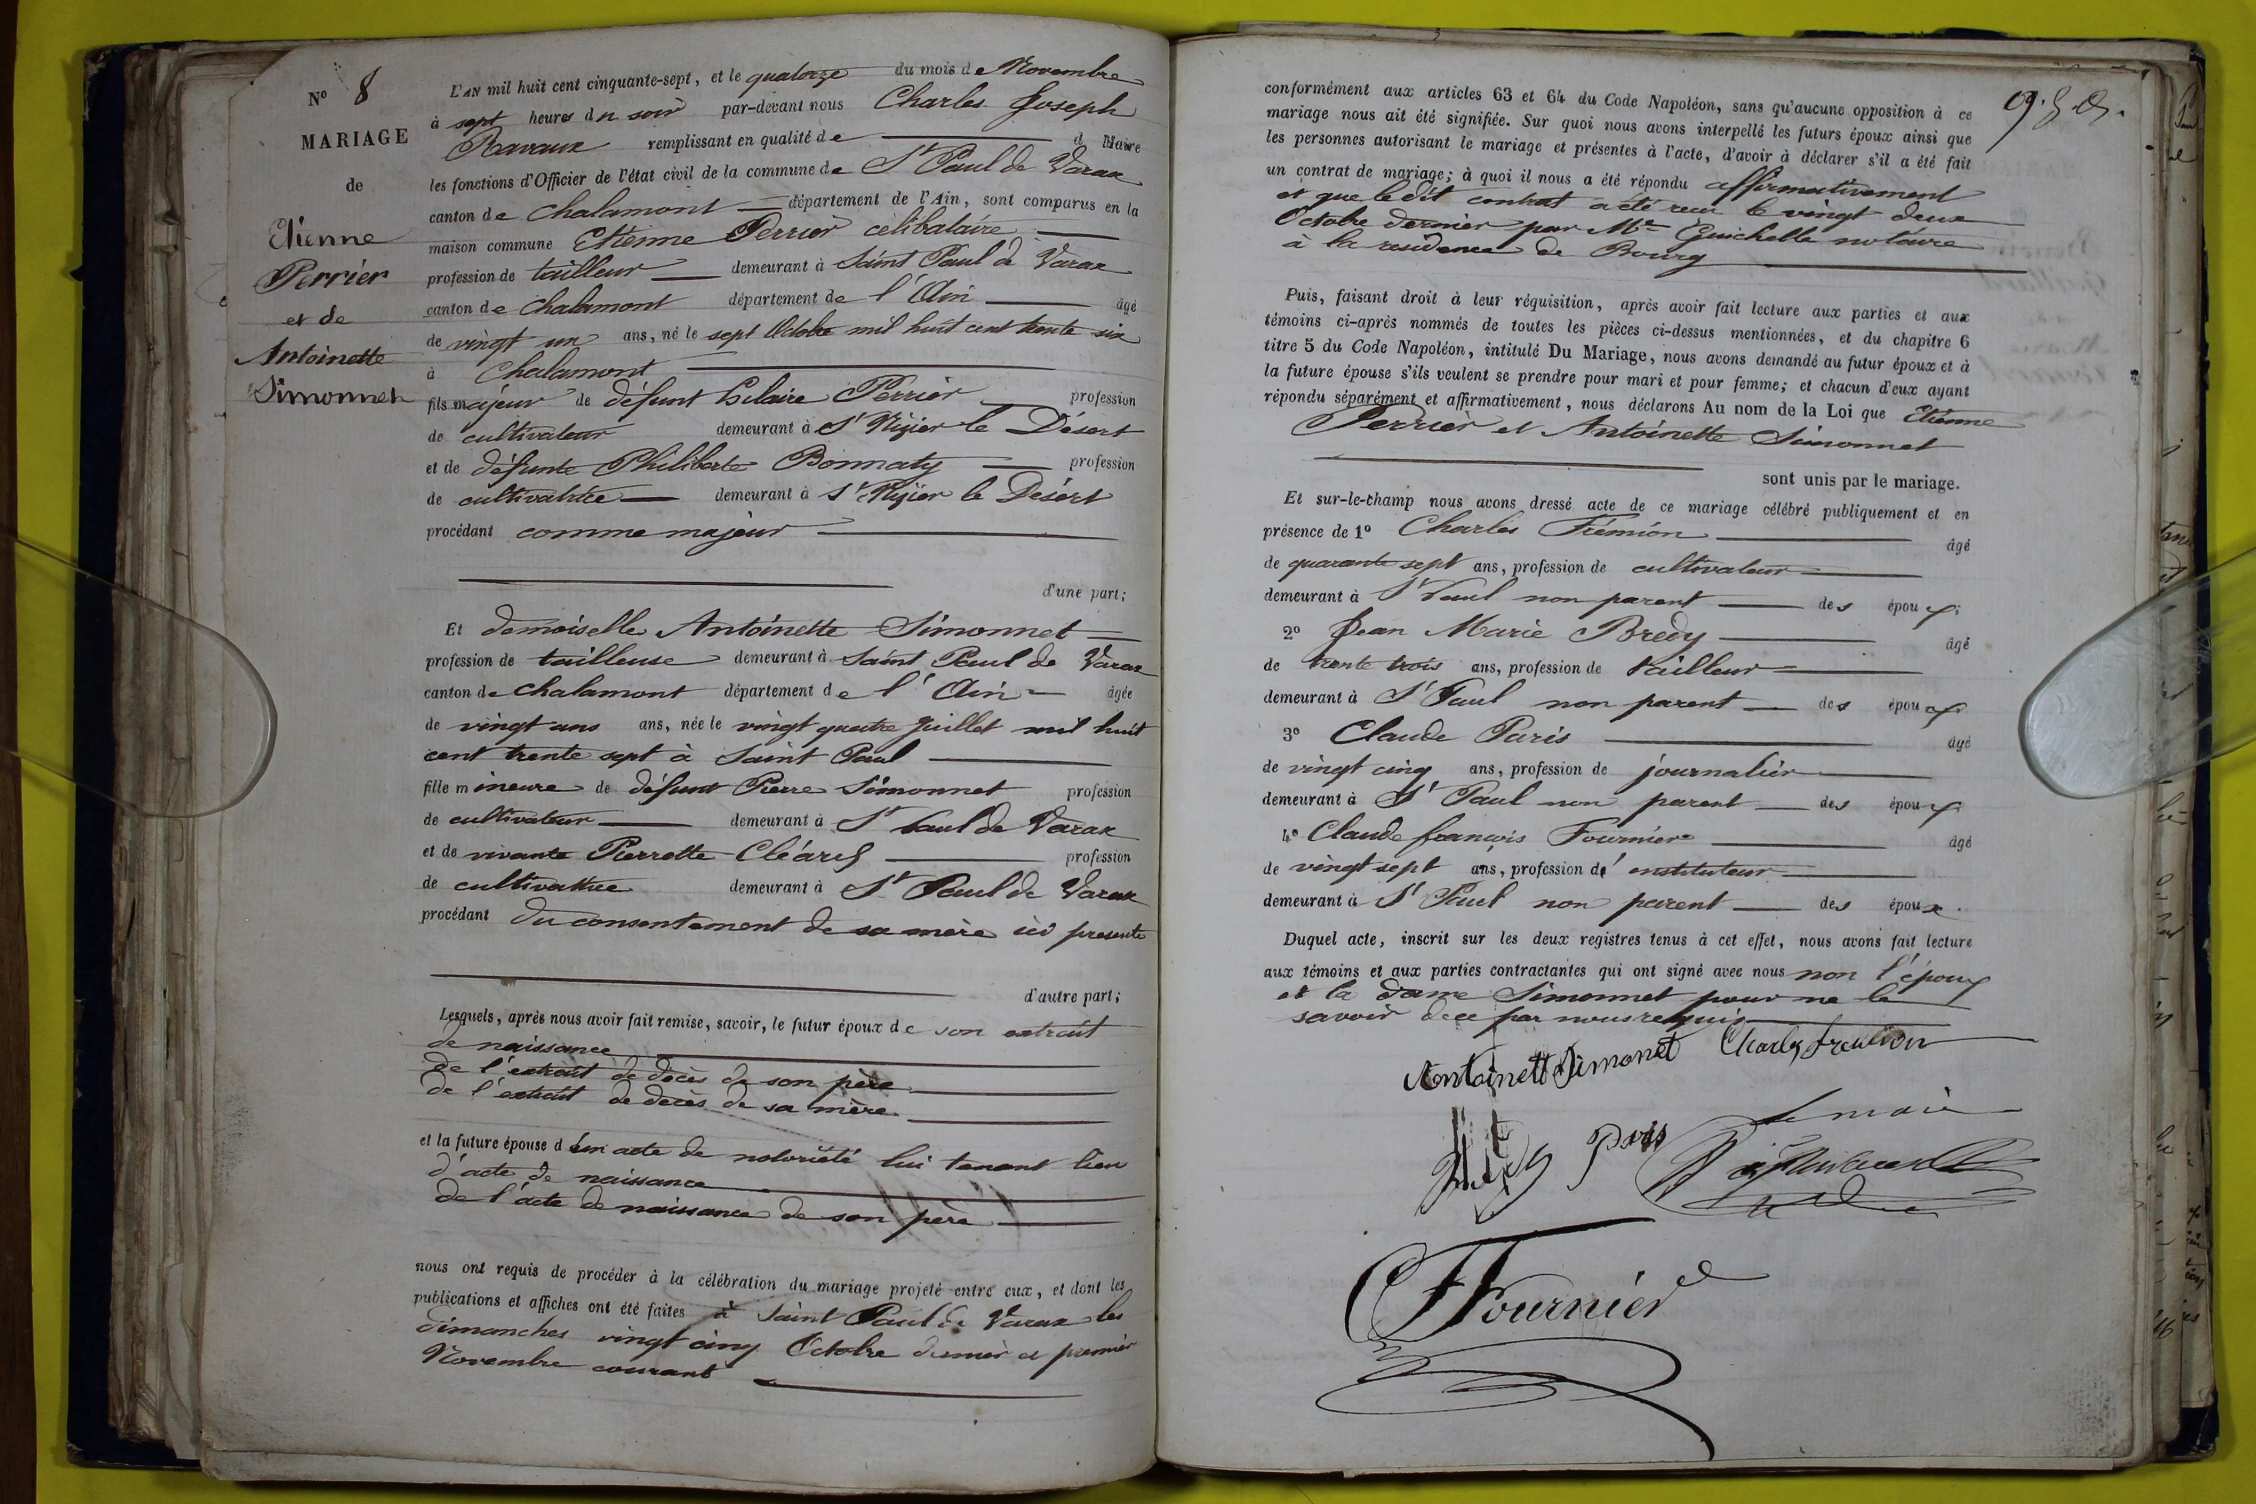 N° 8
MARIAGE
de
Etienne
Perrier
et de
Antoinette
Simonnet
L'AN mil huit cent cinquante-sept, et le quatorze du mois de Novembre
à sept heures du soir par-devant nous Charles Joseph
Ravaux remplissant en qualité de d Maire
les fonctions d'Officier de l'état civil de la commune de St Paul de Varax
canton de Chalamont département de l'Ain, sont comparus en la
maison commune Etienne Perrier célibataire
profession de tailleur demeurant à Saint Paul de Varax
canton de Chalamont département de l'Ain âgé
de vingt un ans, né le sept Octobre mil huit cent trente six
à Chalamont
fils majeur de défunt hilaire Perrier profession
de cultivateur demeurant à St Nizier le Désert
et de défunte Philiberte Bonnaty profession
de cultivatrice demeurant à St Nizier le Désert
procédant comme majeur
d'une part;
Et demoiselle Antoinette Simonnet
profession de tailleuse demeurant à Saint Paul de Varax
canton de Chalamont département de l'Ain âgée
de vingt ans ans, née le vingt quatre juillet mil huit
cent trente sept à Saint Paul
fille mineure de défunt Pierre Simonnet profession
de cultivateur demeurant à St Paul de Varax
et de vivante Pierrette profession
de cultivatrice demeurant à St Paul de Varax
procédant du consentement de sa mère ici presente
d'autre part;
Lesquels, après nous avoir fait remise, savoir, le futur époux de son extrait
de naissance
de l'extrait de décès de son père
de l'extrait de décès de sa mère
et la future épouse d'un acte de notoriété lui tenant lieu
d'acte de naissance
de l'acte de naissance de son père
nous ont requis de procéder à la célébration du mariage projeté entre eux, et dont les
publications et affiches ont été faites à Saint Paul de Varax les
dimanches vingt cinq Octobre dernier et premier
Novembre courant
conformément aux articles 63 et 64 du Code Napoléon, sans qu'aucune opposition à ce
mariage nous ait été signifiée. Sur quoi nous avons interpellé les futurs époux ainsi que
les personnes autorisant le mariage et présentes à l'acte, d'avoir à déclarer s'il a été fait
un contrat de mariage; à quoi il nous a été répondu affirmativement
et que le dit contrat a été reçu le vingt deux
Octobre dernier par Me Guichelle notaire
à la residence de Bourg
Puis, faisant droit à leur réquisition, après avoir fait lecture aux parties et aux
témoins ci-après nommés de toutes les pièces ci-dessus mentionnées, et du chapitre 6
titre 5 du Code Napoléon, intitulé Du Mariage, nous avons demandé au futur époux et à
la future épouse s'ils veulent se prendre pour mari et pour femme; et chacun d'eux ayant
répondu séparément et affirmativement, nous déclarons Au nom de la Loi que Etienne
Perrier et Antoinette Simonnet
sont unis par le mariage.
Et sur-le-champ nous avons dressé acte de ce mariage célébré publiquement et en
présence de 1° Charles Frémion âgé
de quarante sept ans, profession de cultivateur
demeurant à St Paul non parent des époux;
2° Jean Marie Brédy âgé
de trente trois ans, profession de tailleur
demeurant à St Paul non parent des époux
3° Claude Paris âgé
de vingt cinq ans, profession de journalier
demeurant à St Paul non parent des époux
4° Claude françois Fournier âgé
de vingt sept ans, profession d'instituteur
demeurant à St Paul non parent des époux.
Duquel acte, inscrit sur les deux registres tenus à cet effet, nous avons fait lecture
aux témoins et aux parties contractantes qui ont signé avec nous non l'époux
et la dame Simonnet pour ne le
savoir de ce par nous requis
Antoinett Simonet Charles fremion
le maire
Paris
Fournier